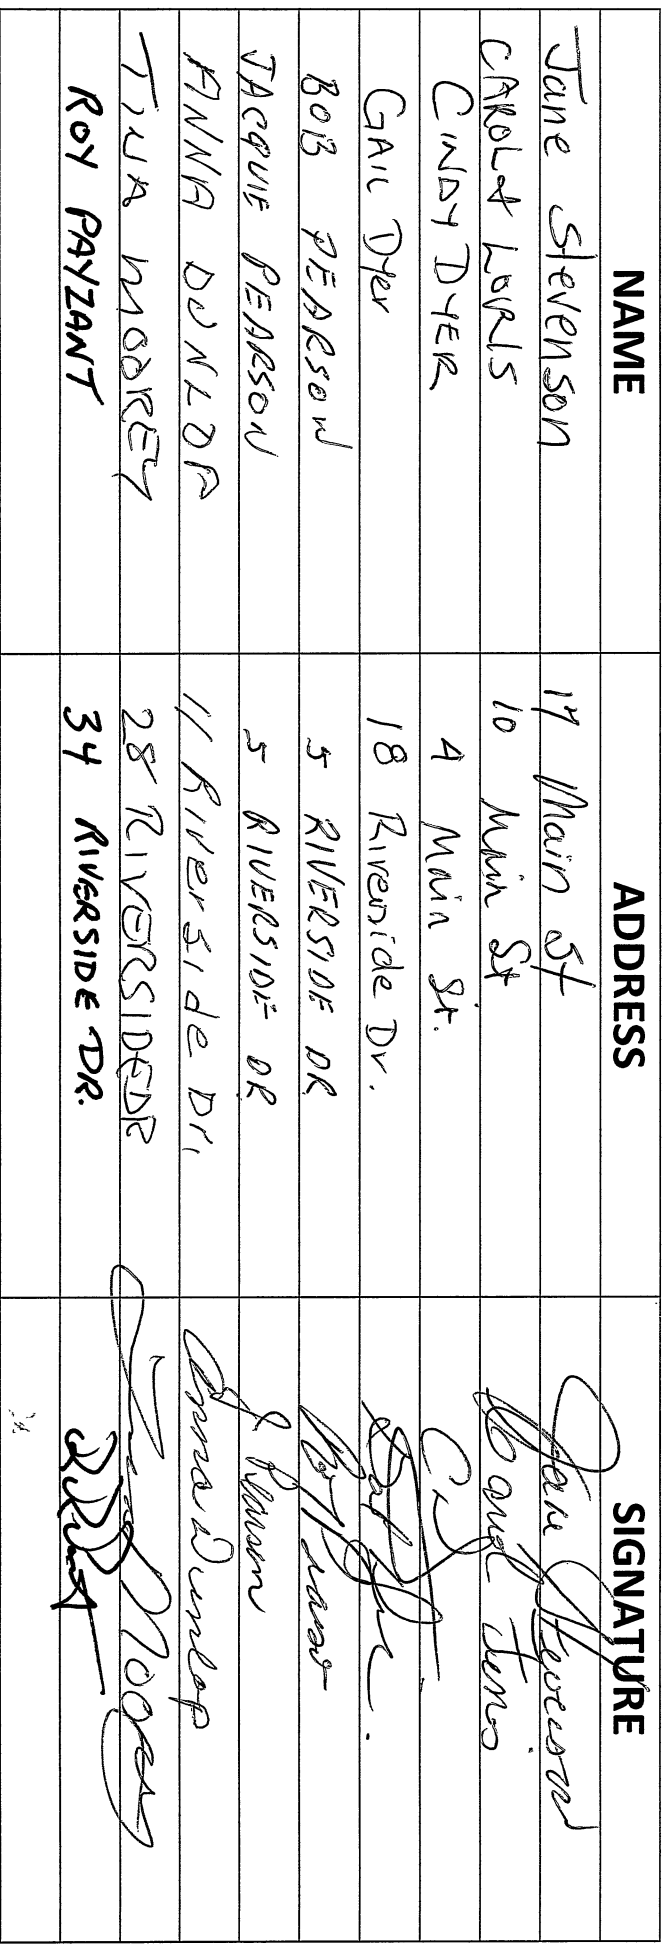 NAME ADDRESS SIGNATURE
Jane Stevenson 17 Main St Jane Stevenson
CAROL 10 Main St Carol
CINDY DYER 4 Main St.
GAIL Dyer 18 Riverside Dr.
BOB PEARSON 5 RIVERSIDE DR
JACQUIE PEARSON 5 RIVERSIDE DR J Pearson
ANNA DUNLOP 11 Riverside Dr. Anna Dunlop
TINA MOOREY 28 RIVERSIDE DR
ROY PAYZANT 34 RIVERSIDE DR.